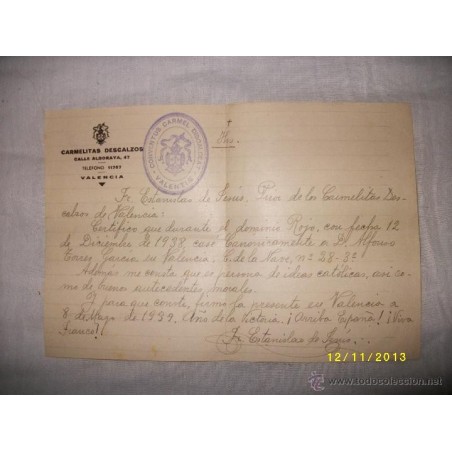 CARMELITAS DESCALZOS
CALLE ALBORAYA, 47
TELÉFONO 11787
VALENCIA
CONVENTUS CARMEL. DISCALCEAT.
VALENTIÆ
†
Fr. Estanislao de Prior de los Carmelitas Des-
calzos de Valencia:
Certifico que durante el dominio Rojo, con fecha 12
de Diciembre de 1938 casé Canonicamente a D. Alfonso
Torres Garcia en Valencia. C. de la Nave, nº 28-3º!
Además me consta que es persona de ideas catolicas, asi co-
mo de buenos antecedentes morales.
Y para que conste, firmo la presente en Valencia a
8 de Mayo de 1939. Año de la Victoria. ¡Arriba España! ¡Viva
Franco!!
Fr. Estanislao de
12/11/2013
www.todocoleccion.net